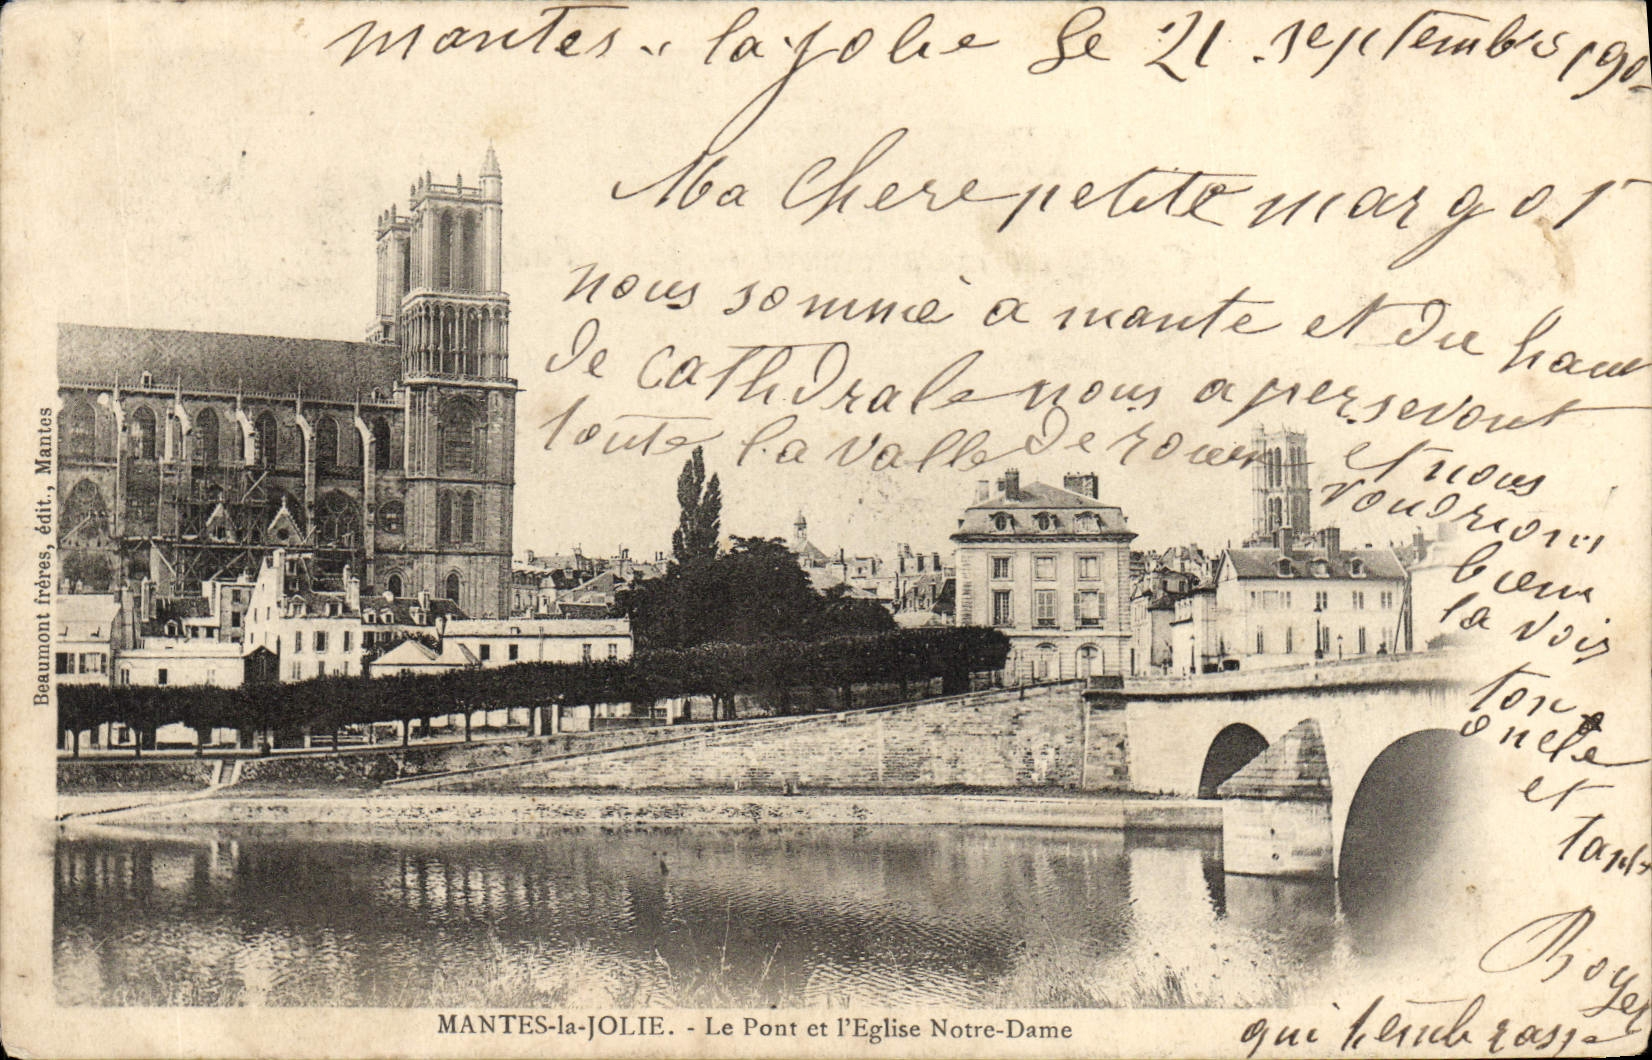 mantes-la-jolie Le 21 septembre 190
Ma Chere petite margot
nous sommé a mante et du haut
de cathedrale nous apersevont
toute la vallé de rouen et nous
voudrions
bien
la voir
ton
oncle
et
tante
Boyer
qui t'embrasse
Beaumont frères, édit., Mantes
MANTES-la-JOLIE. - Le Pont et l'Eglise Notre-Dame